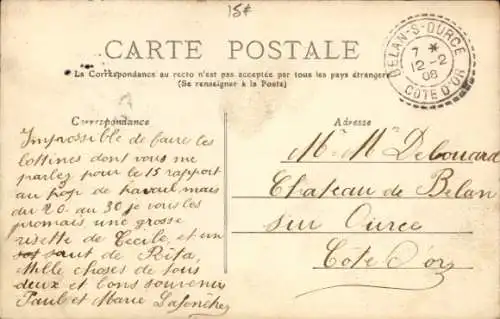 15 *
CARTE POSTALE
La Correspondance au recto n'est pas acceptée par tous les pays étrangers
(Se renseigner à la Poste)
BELAN-S-OURCE
7 *
12-2
08
COTE D'OR
Correspondance
Adresse
Impossible de faire les
bottines dont vous me
parlez pour le 15 rapport
au trop de travail mais
du 20 au 30 je vous les
promais une grosse
risette de Cecile, et un
saut de Rita,
Mille choses de tous
deux et bons souvenirs
Paul et Marie
Mr Mme Debouard
Chateau de Belan
sur Ource
Côte d'or